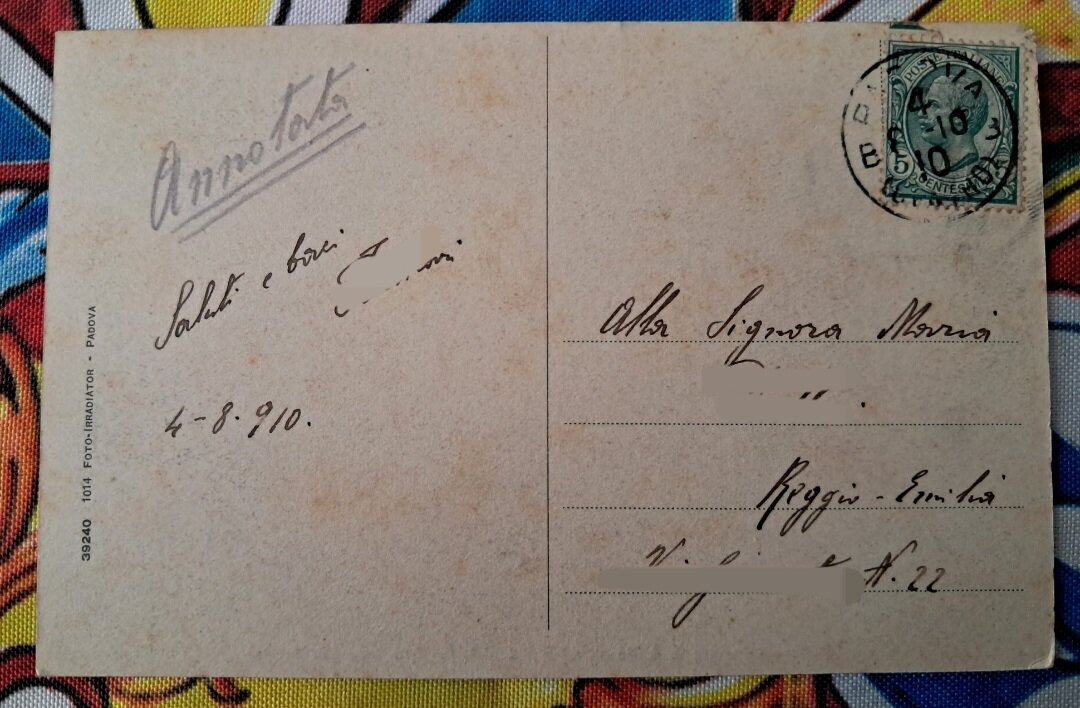 Annotata
Saluti e baci
4-8-910.
39240 1014 FOTO-IRRADIATOR - PADOVA
POSTE ITALIANE
4
-10 3
10
5
CENTESIMI
Alla Signora Maria
" .
Reggio-Emilia
N. 22